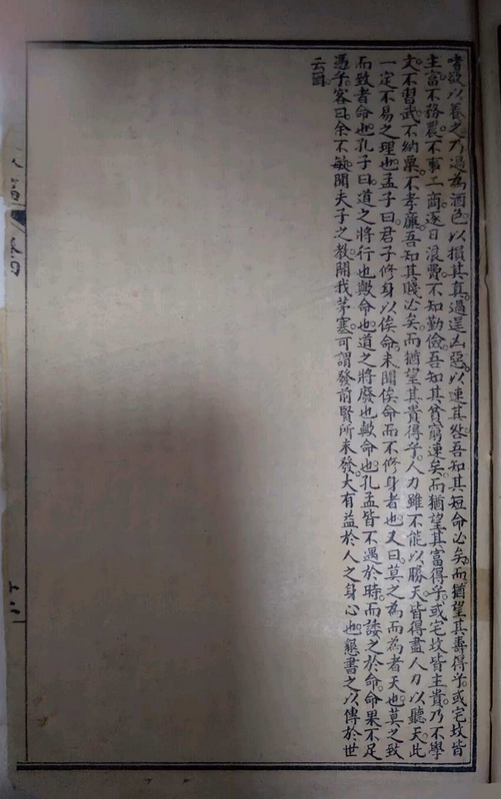 嗜欲以養之乃過為酒色以損其真過逞凶惡以速其咎吾知其短命必矣而猶望其壽得乎或宅坟皆
主富不務農不事工商逐日浪費不知勤儉吾知其貧窮速矣而猶望其富得乎或宅坟皆主貴乃不學
文不習武不納粟不孝廉吾知其賤必矣而猶望其貴得乎人力雖不能以勝天皆得盡人力以聽天此
一定不易之理也孟子曰君子修身以俟命未聞俟命而不修身者也又曰莫之為而為者天也莫之致
而致者命也孔子曰道之將行也歟命也道之將廢也歟命也孔孟皆不遇於時而諉之於命命果不足
憑乎客曰余不敏聞夫子之教開我茅塞可謂發前賢所未發大有益於人之身心也懇書之以傳於世
云爾
卷四
十二